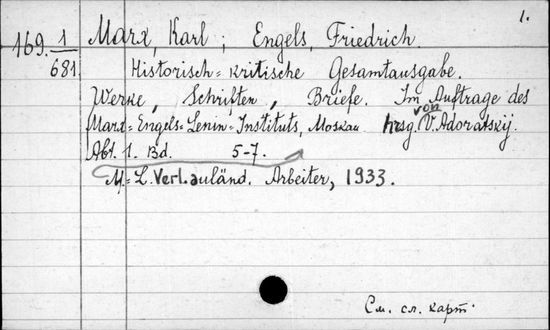 1.
169. 1/681 Marx, Karl; Engels, Friedrich.
Historisch=kritische Gesamtausgabe.
Werke, Schriften, Briefe. Im Auftrage des
Marx=Engels=Lenin=Instituts, Moskau hrsg. von V. Adoratskij.
Abt. 1. Bd. 5-7.
M=L. Verl. auländ. Arbeiter, 1933.
См. сл. карт.